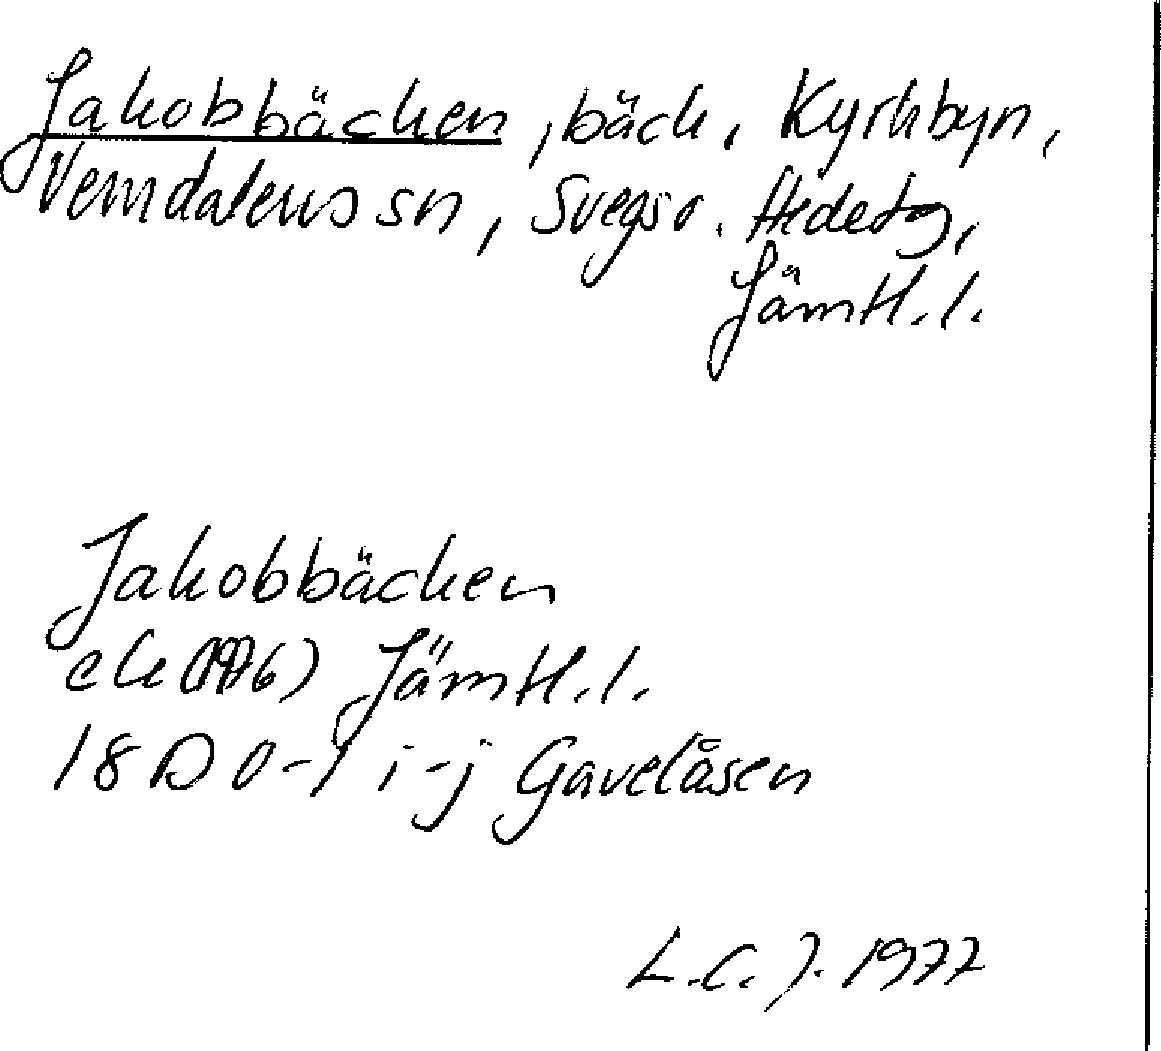 Jakobbäcken, bäck, Kyrkbyn,
Vemdalens sn, Svegs o. Hede tg,
Jämtl. l.
Jakobbäcken
ek (1976) Jämtl. l.
18 D 0-1 i-j Gavelåsen
L.C.J. 1977